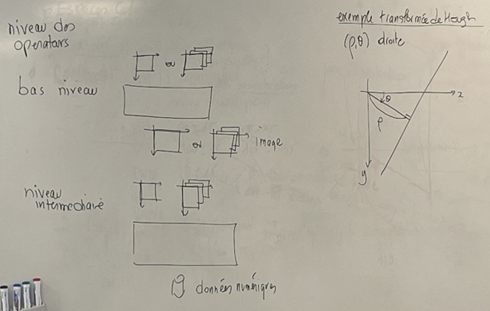 niveau des
operateurs
or
bas niveau
or
image
niveau
intermediaire
données numériques
exemple transformée de Hough
(ρ,θ) droite
θ
x
ρ
y